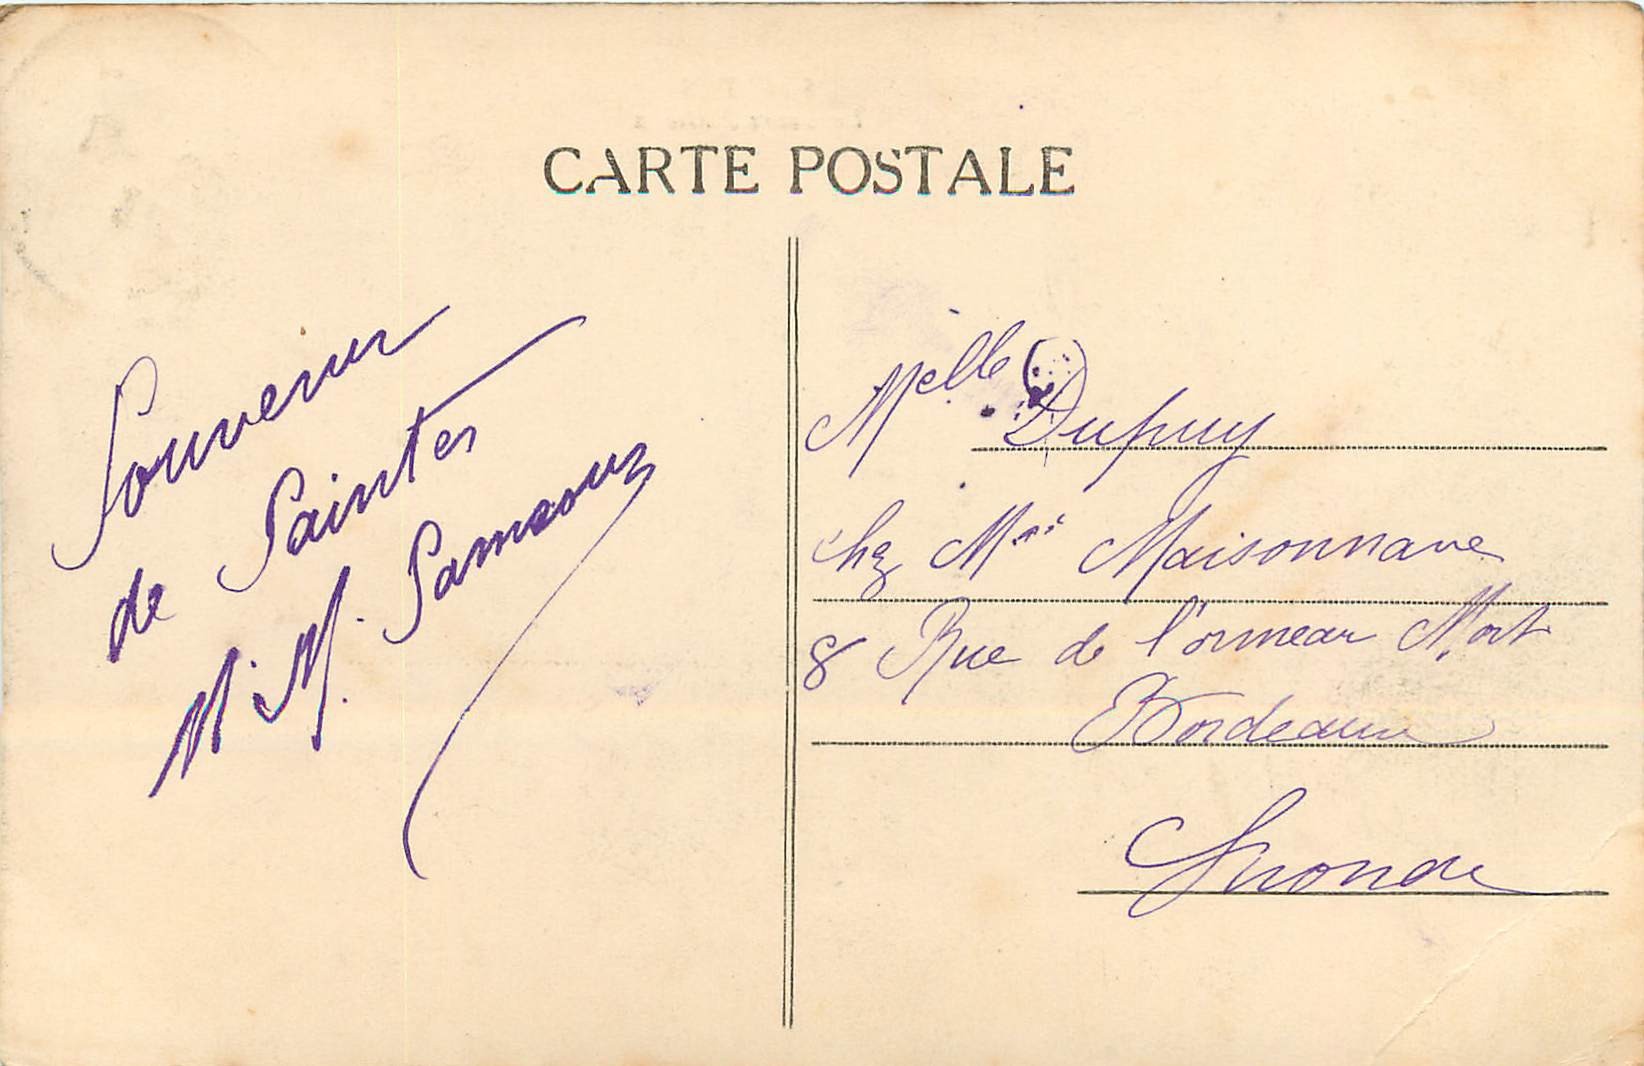 CARTE POSTALE
Souvenir
de Saintes
M. M.
Melle Dupuy
chez Mme Maisonnave
8 Rue de l'ormeau Mort
Bordeaux
Gironde